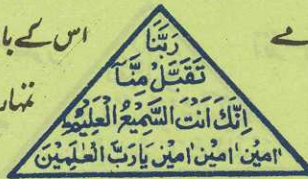 اس کے با
مے
تمہار
رَبَّنَا
تَقَبَّلْ مِنَّا
اِنَّكَ اَنْتَ السَّمِيْعُ الْعَلِيْمُ
اٰمِيْن اٰمِيْن اٰمِيْن يَا رَبَّ الْعٰلَمِيْنَ